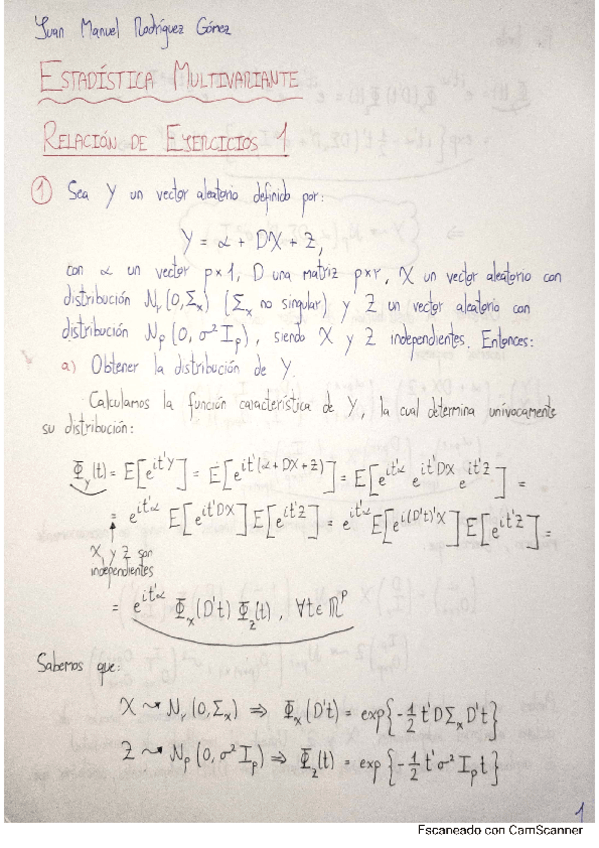 Juan Manuel Rodríguez Gómez
ESTADÍSTICA MULTIVARIANTE
RELACIÓN DE EJERCICIOS 1
① Sea Y un vector aleatorio definido por:
Y = α + DX + Z,
con α un vector p×1, D una matriz p×r, X un vector aleatorio con
distribución N_r(0,Σ_x) (Σ_x no singular) y Z un vector aleatorio con
distribución N_p(0, σ² I_p), siendo X y Z independientes. Entonces:
a) Obtener la distribución de Y.
Calculamos la función característica de Y, la cual determina unívocamente
su distribución:
Φ_y(t) = E[e^{it'Y}] = E[e^{it'(α+DX+Z)}] = E[e^{it'α} e^{it'DX} e^{it'Z}] =
= e^{it'α} E[e^{it'DX}] E[e^{it'Z}] = e^{it'α} E[e^{i(D't)'X}] E[e^{it'Z}] =
X y Z son
independientes
= e^{it'α} Φ_x(D't) Φ_z(t), ∀t∈ℝ^p
Sabemos que:
X ⤳ N_r(0,Σ_x) ⇒ Φ_x(D't) = exp{-1/2 t'DΣ_xD't}
Z ⤳ N_p(0,σ²I_p) ⇒ Φ_z(t) = exp{-1/2 t'σ²I_pt}
1
Escaneado con CamScanner